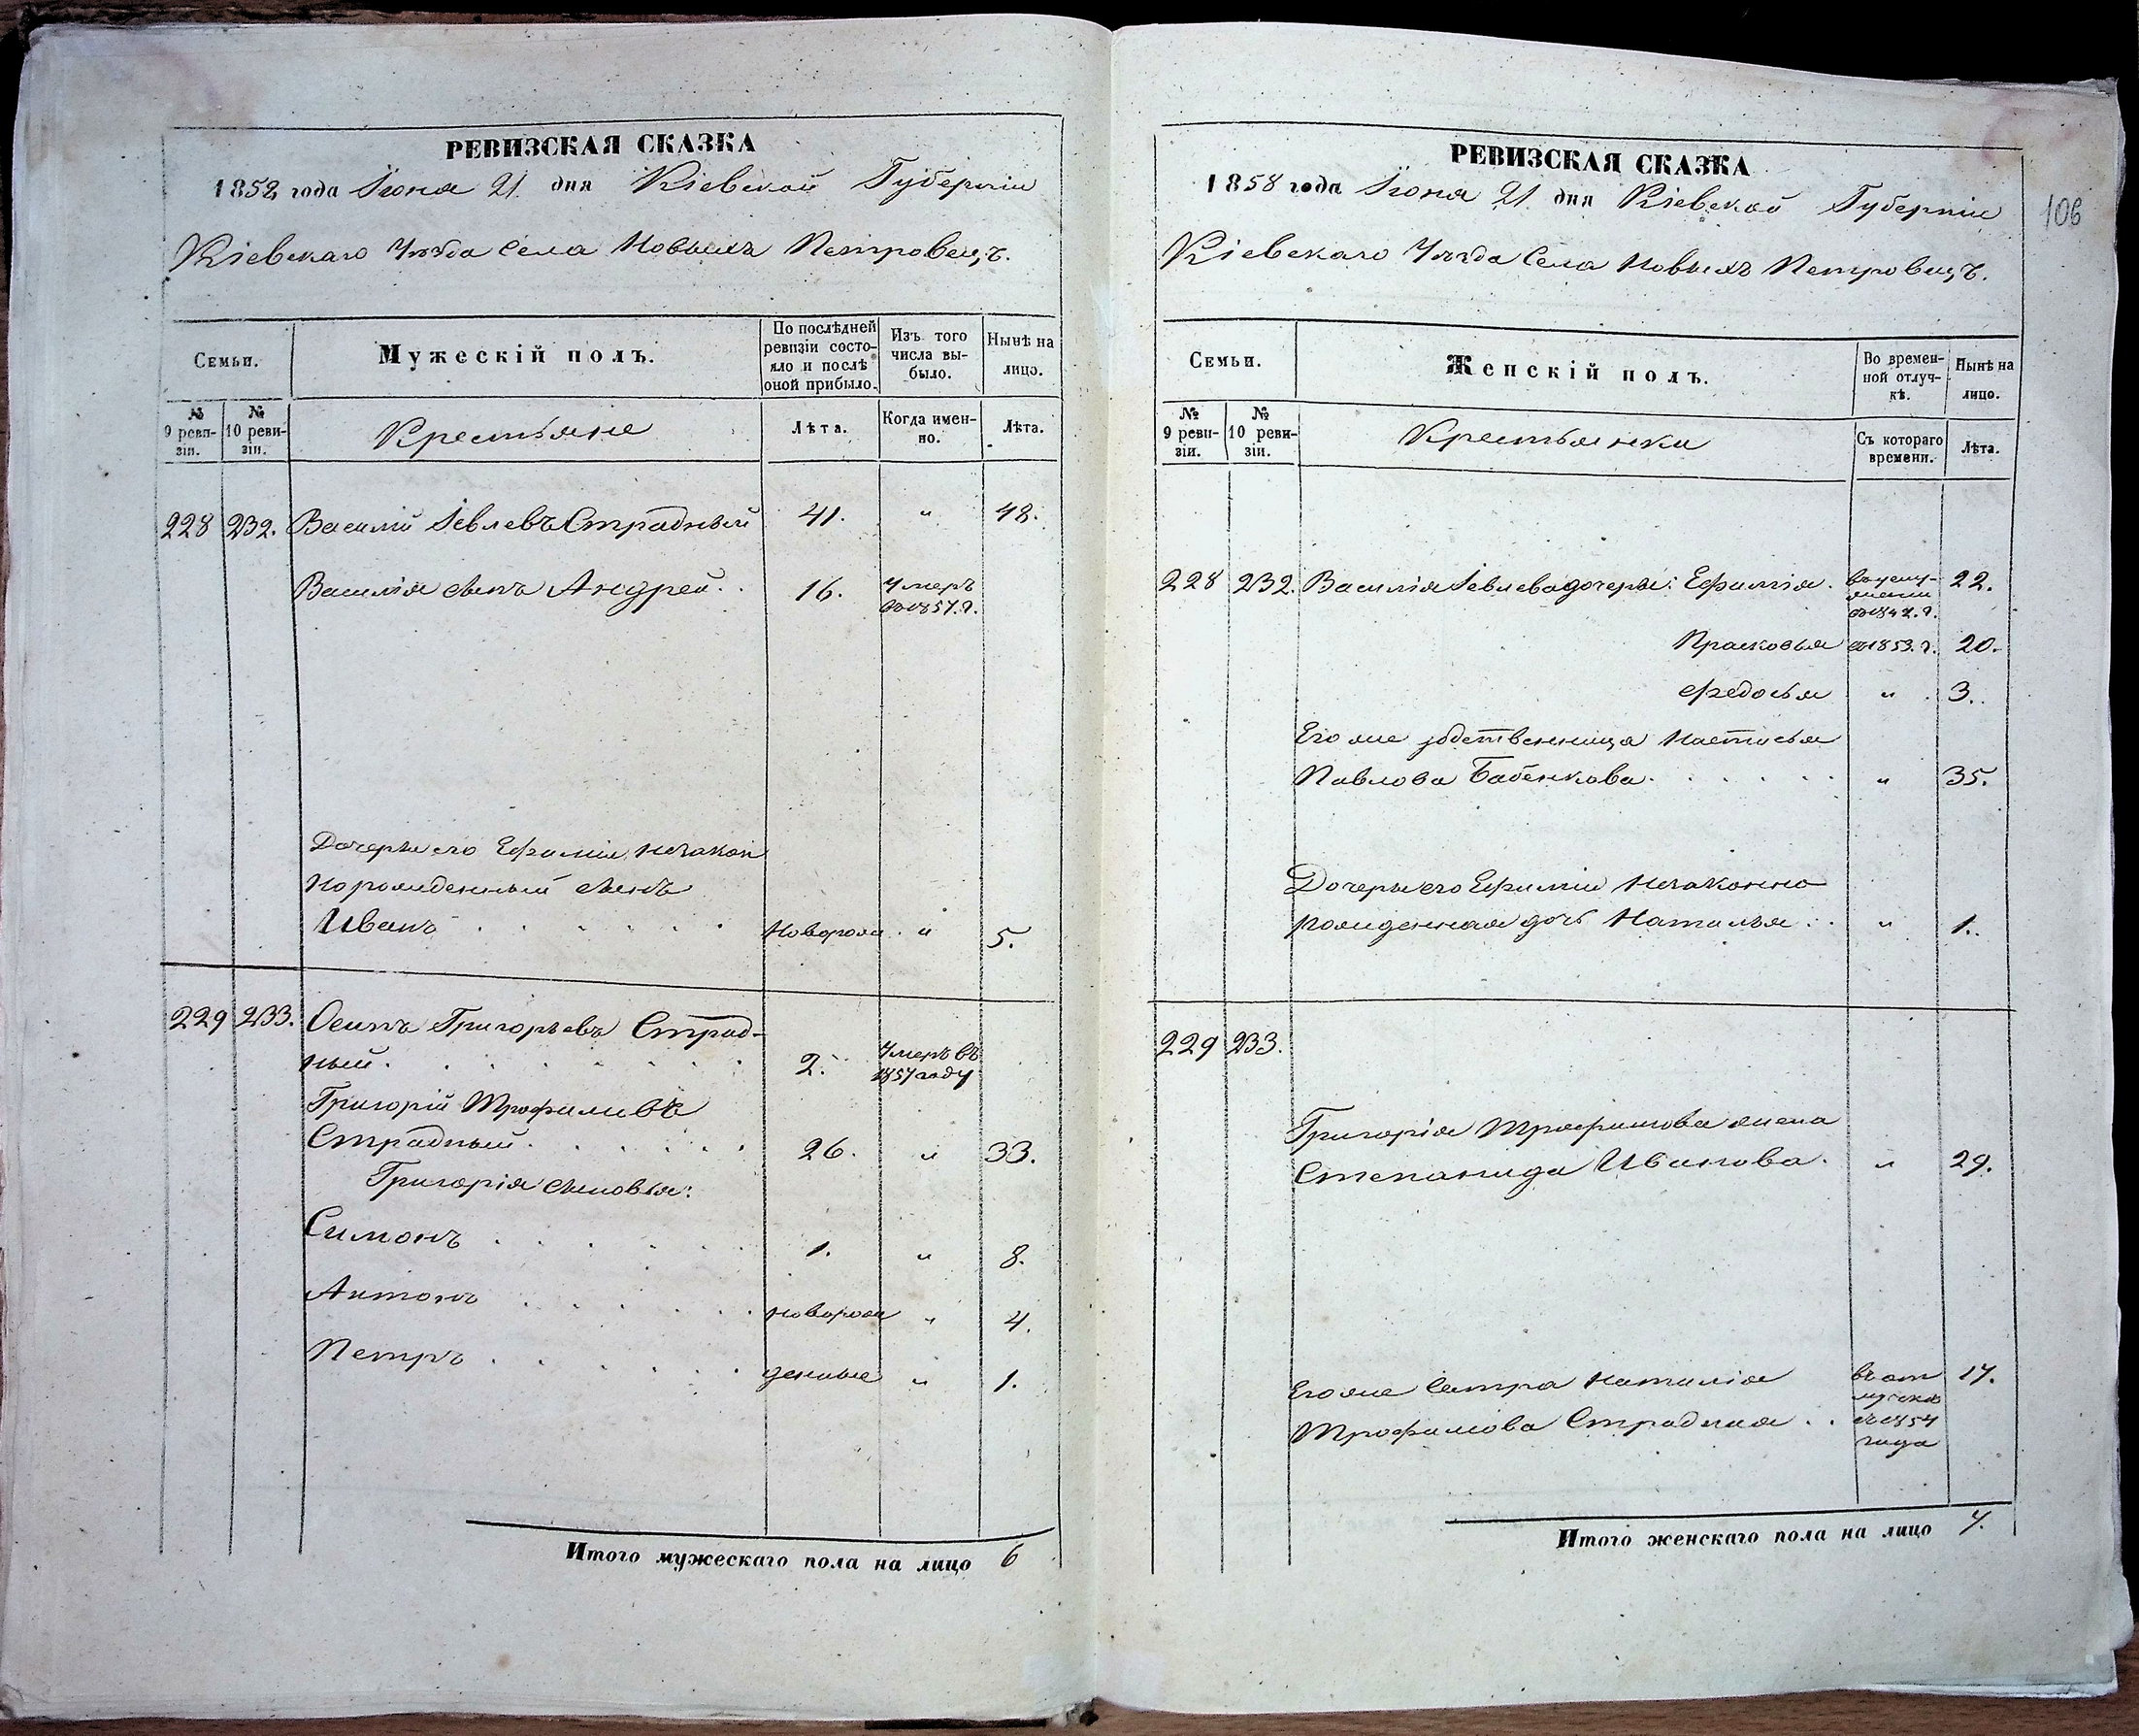 РЕВИЗСКАЯ СКАЗКА
1858 года Іюня 21 дня Кіевской Губерніи
Кіевскаго Уѣзда Села Новыхъ Петровецъ.
Семьи.
Мужескій полъ.
По послѣдней ревизіи состояло и послѣ оной прибыло.
Изъ того числа выбыло.
Нынѣ на лицо.
№ 9 ревизіи.
№ 10 ревизіи.
Крестьяне
Лѣта.
Когда именно.
Лѣта.
228 232. Василій Іевлевъ Страдный 41. " 48.
Василія сынъ Андрей. . 16. Умеръ въ 1857. г.
Дочери его Ефиміи незакон
норожденный сынъ
Иванъ . . . . . . Новорож. " 5.
229 233. Осипъ Григорьевъ Страд-
ный . . . . . . 2. Умеръ въ 1857 году
Григорій Трофимовъ
Страдный . . . . . 26. " 33.
Григорія сыновья:
Симонъ . . . . . 1. " 8.
Антонъ . . . . . новорож " 4.
Петръ . . . . . денные " 1.
Итого мужескаго пола на лицо 6
РЕВИЗСКАЯ СКАЗКА
106
1858 года Іюня 21 дня Кіевской Губерніи
Кіевскаго Уѣзда Села Новыхъ Петровецъ.
Семьи.
Женскій полъ.
Во временной отлучкѣ.
Нынѣ на лицо.
№ 9 ревизіи.
№ 10 ревизіи.
Крестьянки
Съ котораго времени.
Лѣта.
228 232. Василія Іевлева дочери: Ефимія. 22.
Прасковья съ 1853. г. 20.
Федосья " 3.
Его же Настасья
Павлова Бабенкова . . . . . " 35.
Дочери его Ефиміи незаконно
рожденная дочь Наталья . . " 1.
229 233.
Григорія Трофимова жена
Степанида Иванова. " 29.
Его же сестра Наталія въ от 17.
Трофимова Страдная . . лучкѣ съ 1854
года
Итого женскаго пола на лицо 7.